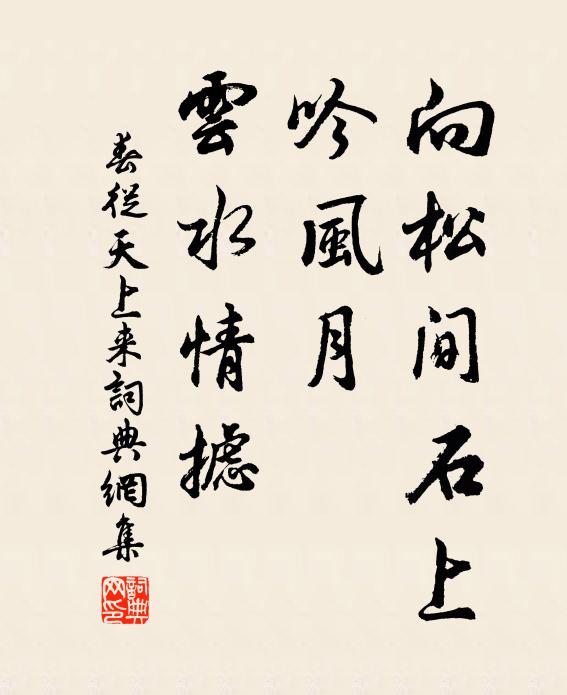 向松間石上
吟風月
雲水情攄
春從天上来詞典網集
詞典网印